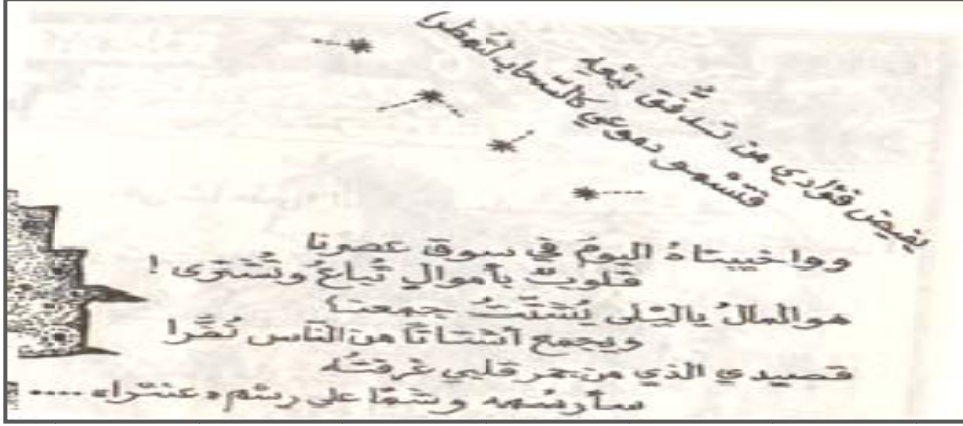 يفيض فؤادي من تدفق نبعه
فتسمو دموعي كالسحاب لتهطرا
وواخيبتاهُ اليومَ في سوق عصرنا
قلوبٌ بأموالٍ تُباعُ وتُشترى !
هو المالُ ياليلى يُشتّتُ جمعنا
ويجمع أشتاتًا من الناس نُفَّرا
قصيدي الذي من جمر قلبي غرفتُه
سأرسُمه وشمًا على رسْم « عنترا» ....